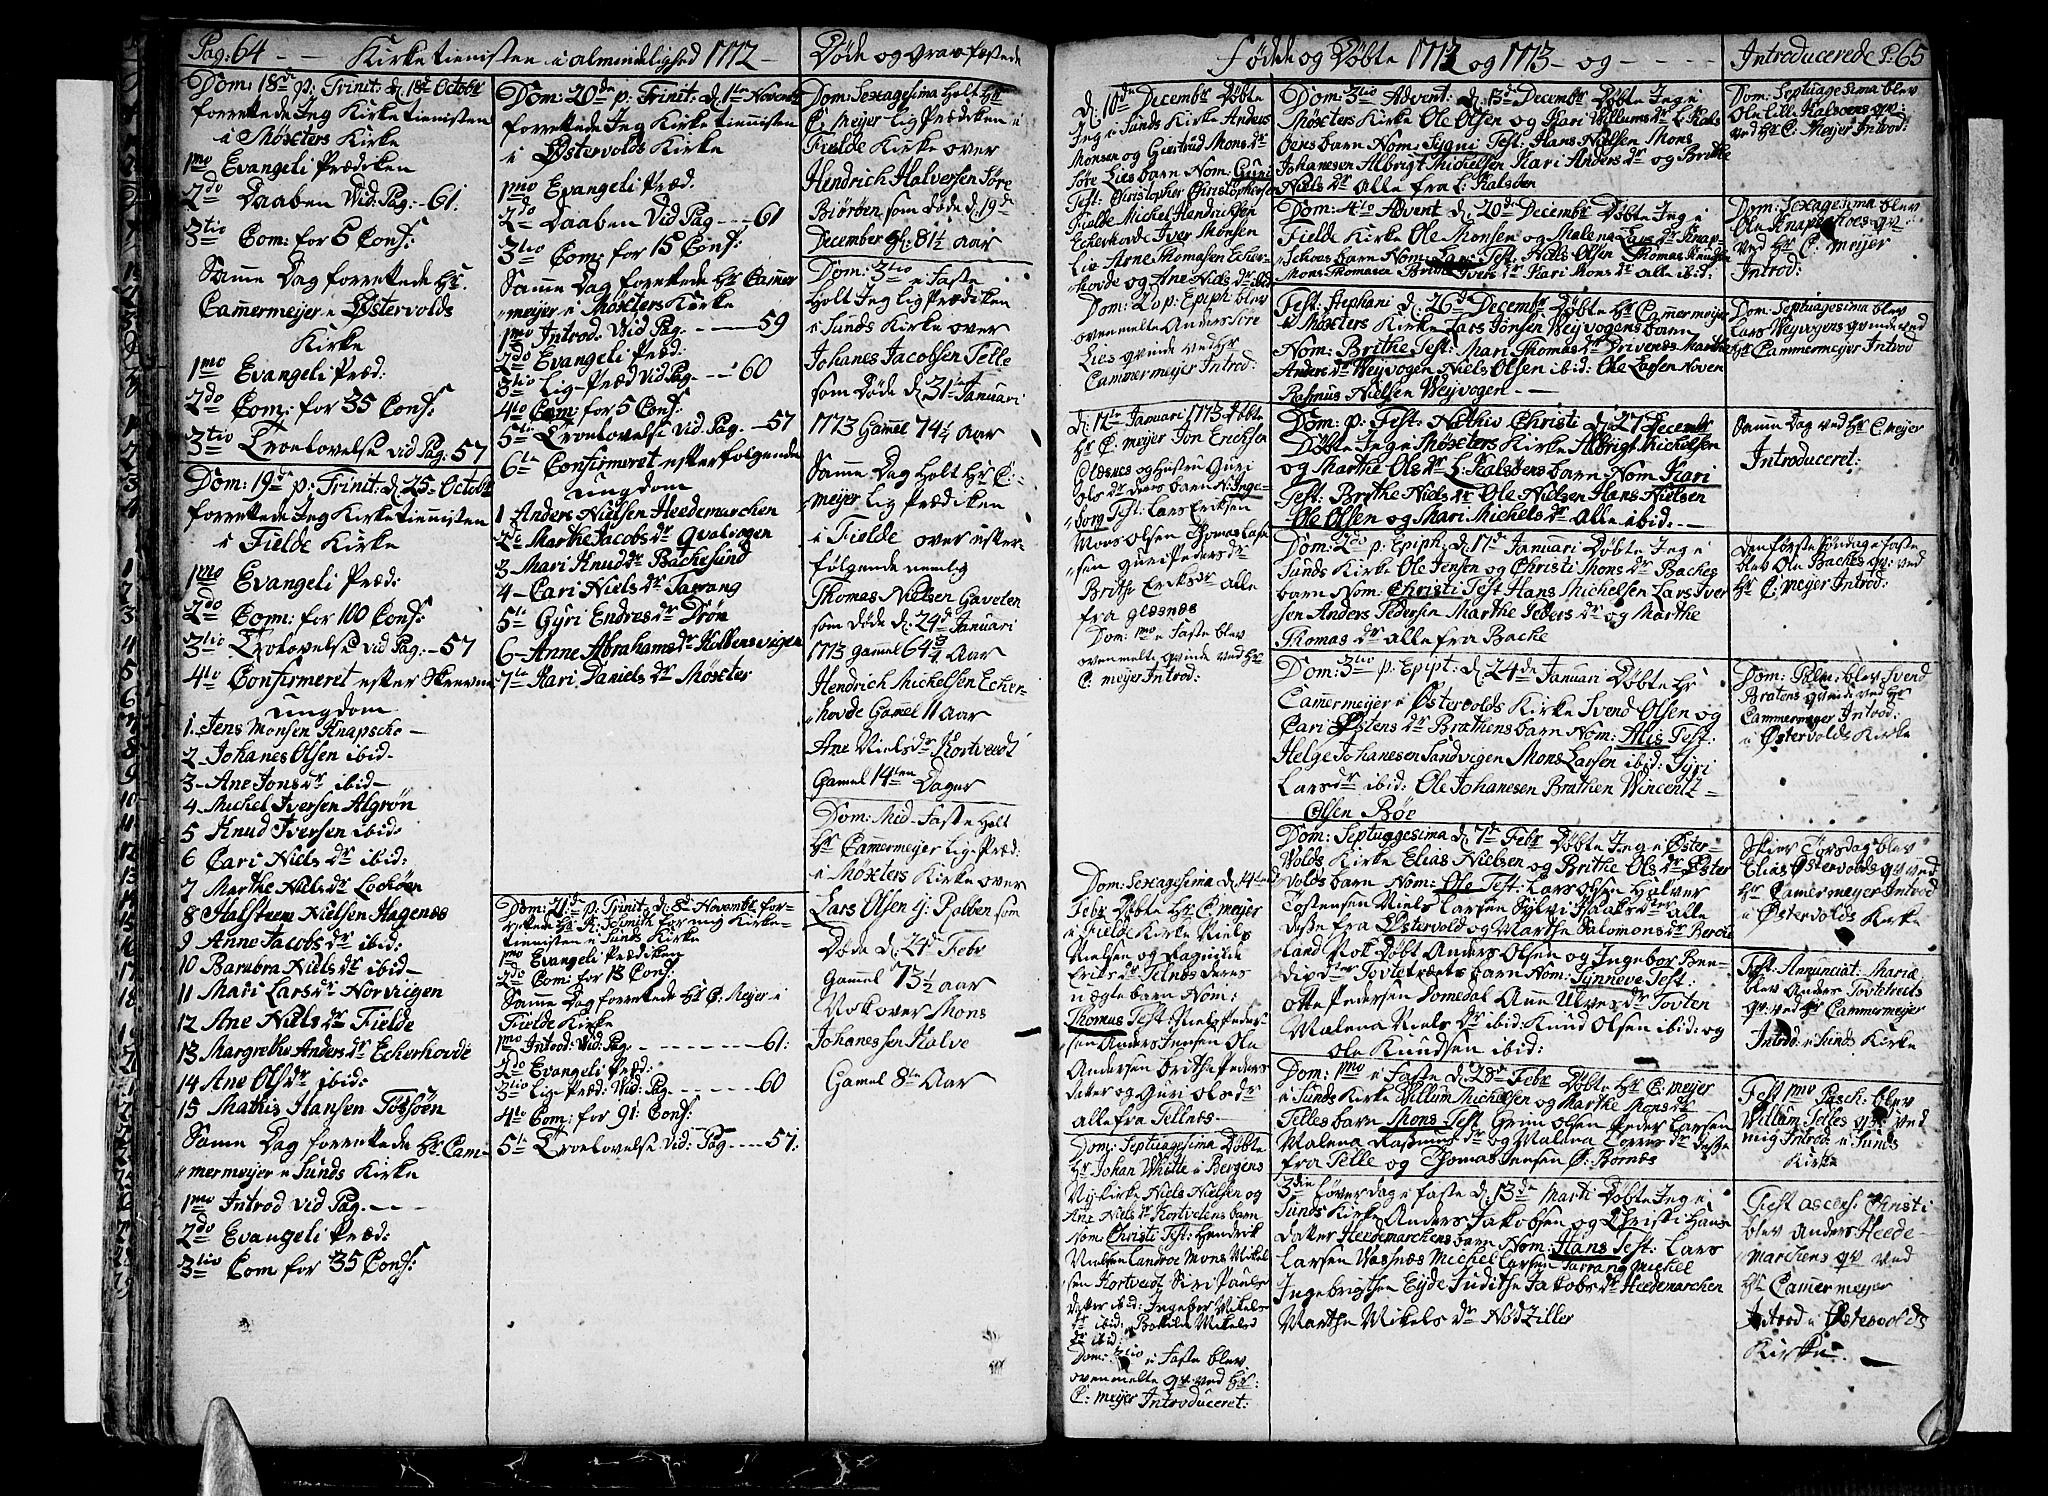 Pag: 64 - - Kirketienisten i almindelighed 1772
Dom: 18de p: Trinit: d: 18de Octobr
forrettede Jeg Kirketienisten
i Møxters Kirke
1mo Evangeli Prædiken
2do Daaben Vid: Pag: 61:
3tio Com: for 5 Conf:
Samme Dag forrettede Hr:
Cammermeijer i Østervolds
Kirke
1mo Evangeli Præd:
2do Com: for 35 Conf:
3tio Troelovelse vid Pag: 57
Dom: 19de p: Trinit: d: 25de Octobr
forrettede Jeg Kirketienisten
i Fielde Kirke
1mo Evangeli Præd:
2do Com: for 100 Conf:
3tio Trolovelse vid Pag: -57
4to Confirmeret efter Skrevne
ungdom
1. Jens Monsen Knapscho -
2 Johanes Olsen ibid-
3- Ane Jonsdr ibid-
4 Michel Iversen Algrøn
5 Knud Iversen ibid:
6 Cari Nielsdr ibid:
7 Marthe Nielsdr Lochøen
8 Halsteen Nielsen Hagenæs
9 Anne Jacobsdr ibid:
10 Barabra Nielsdr ibid-
11 Mari Larsdr Norvigen
12 Ane Nielsdr Fielde
13 Margrethe Andersdr Echerhovde
14 Ane Olsdr ibid:
15 Mathis Hansen Tøtsøen
Samme Dag forrettede Hr: Cam-
mermeijer i Sunds Kirke
1mo Introd vid Pag. - - -
2do Evangeli Præd:
3tio Com: for 35 Conf:
Dom: 20de p: Trinit: d: 1te Novembr
forrettede Jeg Kirketiennisten
i Østervolds Kirke
1mo Evangeli Præd.
2do Daaben Vid Pag ---- 61
3tio Com: for 15 Conf:
Samme Dag forrettede Hr Cammer
meijer i Møxters Kirke
1mo Introd. Vid Pag. ------ 59
2do Evangeli Præd:
3tio Lig-Præd Vid Pag. - - - 60
4to Com: for 5 Conf:
5te Trolovelse vid. Pag. --- 57
6te Confirmeret efterfolgende
ungdom
1 Anders Nielsen Heedemarchen
2do Marthe Jacobsdr Qvalvogen
3- Mari Knudsdr Bachesund
4- Cari Nielsdr Tarrang
5te Gyri Endresdr Drøn
6- Anne Abrahamsdr Kolbensvigen
7te Kari Danielsdr Møxter
Dom: 21de p: Trinit: d: 8de Novembr for-
rettede Hr. R. Schmidt for mig Kirke-
tiennisten i Sunds Kirke
1mo Evangeli Prædiken
2do Com: for 13 Conf:
Samme Dag forrettede Hr C: Meyer i
Fielde Kirke
1mo Introd: Vid: Pag. - - - - - - - - 61:
2do Evangeli Præd:
3tio Lig-Præd: Vid: Pag ----- 60
4to Com: for 91: Conf:
5te Trolovelse vid: Pag ---- 57:
Døde og Gravfæstede
Dom: Sexagesima Holt Hr
C: Meijer Lig Prædiken i
Fielde Kirke over
Hendrich Halversen Søre
Biørøen som døde d: 19de
December gl: 81½ Aar
Dom: 3tio i Faste
Holt Jeg Lig Prædiken
i Sunds Kirke over
Johanes Jacobsen Telle
som Døde d: 31te Januari
1773 Gamel 74¼ Aar
Samme Dag Holt Hr C:-
meijer Lig Prædiken
i Fielde over efter-
følgende nemlig
Thomas Nielsen Gaveten
som døde d: 24de Januari
1773 gammel 64¾ Aar
Hendrich Michelsen Echer-
hovde Gamel 11 Aar
Ane Nielsdr Kortvedt
Gamel 14ten Dager
Dom: Med-Faste Holt
Hr Cammermeijer Lig-Præd:
i Møxters Kirke over
Lars Olsen Rabben som
Døde d: 24de Febr
Gammel 73½ aar
Nok over Mons
Johanessen Kalve
Gamel 8te Aar
Fødde og Døbte 1772 og 1773 - og - - - - Introducerede P: 65
d: 10de Decembr Døbte
Jeg i Sunds Kirke Anders
Monsen og Giertrud Monsdr
Søre Lies barn Nom: Guri
Test: Christopher Christophersen
Fielde Michel Hendrichsen
Echerhovde Iver Monsen
Lie Arne Thomasen Echer-
hovde og Ane Nielsdr ibid
Dom: 2do p: Epiph blev
ovenmelte Anders Søre
Lies qvinde ved Hr
Cammermeijer Introd:
d: 12te Januari 1773 Døbte
Hr C: meijer Jon Erichsen
Glæsnes og Hustru Guri
Olsdr deres barn N: Inge-
borg Test: Lars Eriksen
Mons Olsen Thomas Las-
sen Guri Pedersdr
Brithe Ericksdr alle
fra glæsnæs
Dom: 1mo i Faste blev
ovenmelte qvinde ved Hr
C: meijer Introd:
Dom: Sexagesima d: 14tende
Febr Døbte Hr C: meijer
i Fielde Kirke Niels
Nielsen og Ragnilde
Eriksdr Telnæs deres
uægte barn Nom:
Thomas Test: Niels Peder-
sen Anders Jensen Ole
Andersen Brithe Peders
dater og Guri Olsdr
alle fra Tellnæs-
Dom: Septuagesima Døbte
Hr Johan Whitte i Bergens
Nykirke Niels Nielsen og
Ane Nielsdr Kortvetens barn
Nom: Christi Test: Henderik
Nielsen Landroe Mons Mikel
sen Kortvedt Siri Pauls
datter ibid: Ingebor Mikels
dr ibid: Bothilde Mikelsd
dr ibid:
Dom: 3tio i Faste blev
ovenmelte qv: ved Hr:
C: meijer Introduceret:
Dom: 3tio Advent: d: 13de Decembr Døbte Jeg i
Møxters Kirke Ole Olsen og Kari Willumsdr L: Kals
øens barn Nom: Signi Test: Hans Nielsen Mons
Johanesen Albrigt Michelsen Kari Andersdr og Brithe
Nielsdr Alle fra L: Kalsøen
Dom: 4to Advent d: 20de Decembr Døbte Jeg i
Fielde Kirke Ole Monsen og Malena Larsdr Knap-
schoes barn Nom: Lars Test: Niels Olsen Thomas Knudsen
Mons Thomasen Brithe Iversdr Kari Monsdr alle ibid:
Fest: Stephani d: 26de Decembr Døbte Hr Cammermeijer
i Møxters Kirke Lars Jonsen Weyvogens barn
Nom: Brithe Test: Mari Thomasdr Drivenæs Marthe
Andersdr Weyvogen Niels Olsen ibid: Ole Larsen Noven
Rasmus Nielsen Weyvogen -
Dom: p: Fest: Nathiv Christi d: 27 Decembr
Døbte Jeg i Møxters Kirke Albrigt Michelsen
og Marthe Olsdr L: Kalsøens barn Nom Kari
Test: Brithe Nielsdr Ole Nielsen Hans Nielsen
Ole Olsen og Mari Michelsdr Alle ibid:-
Dom: 2do p: Epiph: d: 17de Januari Døbte Jeg i
Sunds Kirke Ole Jensen og Christi Monsdr Baches
barn Nom: Christi Test Hans Michelsen Lars Iver
sen Anders Pedersen Marthe Pedersdr og Marthe
Thomasdr alle fra Bache
Dom: 3tio p: Epipt: d: 24de Januari Døbte Hr
Cammermeijer i Østervolds Kirke Svend Olsen og
Cari Østensdr Brathens barn Nom: Alis Test:
Helge Johanesen Sandvigen Mons Larsen ibid: Gyri
Larsdr ibid: Ole Johanesen Brathen Wincentz
Olsen Bøe
Dom: Septuagesima d: 7de Febr Døbte Jeg i Øster
Volds Kirke Elias Nielsen og Brithe Olsdr Øster
volds barn Nom: Ole Test: Lars Olsen Halver
Tostensen Niels Larsen Sylvi Isaaksdr alle
Disse fra Østervold og Marthe Salomonsdr Berche
land Nok Døbt Anders Olsen og Ingebor Bene-
dixdtr Tovtetræets barn Nom: Synneve Test:
Otte Pedersen Somedal Anne Ulvesdr Tovten
Malena Nielsdr ibid: Knud Olsen ibid: og
Ole Knudsen ibid:
Dom: 1mo i Faste d: 28de Febr Døbte Hr C: meijer
i Sunds Kirke Willum Michelsen og Marthe Monsdr
Telles barn Mons Test Grim Olsen Peder Larsen
Malena Rasmusdr og Malena Torresdr disse
fra Telle og Thomas Jensen Ø: Børnæs
3die Løverdag i faste d: 13de Marti Døbte Jeg i
Sunds Kirke Anders Jakobsen og Christi Hans
dater Heedemarchens barn Nom: Hans Test: Lars
Larsen Wasnæs Michel Larsen Tarrang Michel
Ingebrigthsen Eyde Judithe Jakobsdr Heedemarchen
Marthe Mikelsdr Nødziller
Dom: Septuagesima blev
Ole Lille Kalsøens qv:
ved Hr C: Meijer Introd:
Dom: Sexagesima blev
Ole Knapschoes qv:
ved Hr C: meijer
Introd:
Dom: Septuagesima blev
Lars Weyvogens qvinde ved
Hr Cammermeijer Introd
Samme Dag ved Hr C: meijer
Introduceret:
den første Søndag i faste
blev Ole Baches qv: ved
Hr C: meijer Introd:
Dom: Palm: blev Svend
Bratens qvinde ved Hr
Cammermeyer Introd:
i Østervolds Kirke
Skier Torsdag blev
Elias Østervolds qv ved
Hr Camermeijer Introd
i Østervolds Kirke
Fest: Annunciat: Mariæ
blev Anders Tovtetræts
qv: ved Hr Cammermeijer
Introd: i Sunds Kirke
Fest 1mo Pasch: blev
Willum Telles qv: ved
mig Introd: i Sunds
Kirke
Fest ascens: Christi
blev Anders Heede-
marchens qv ved
Hr Cammermeyer
Introd i Østervolds
Kirke -